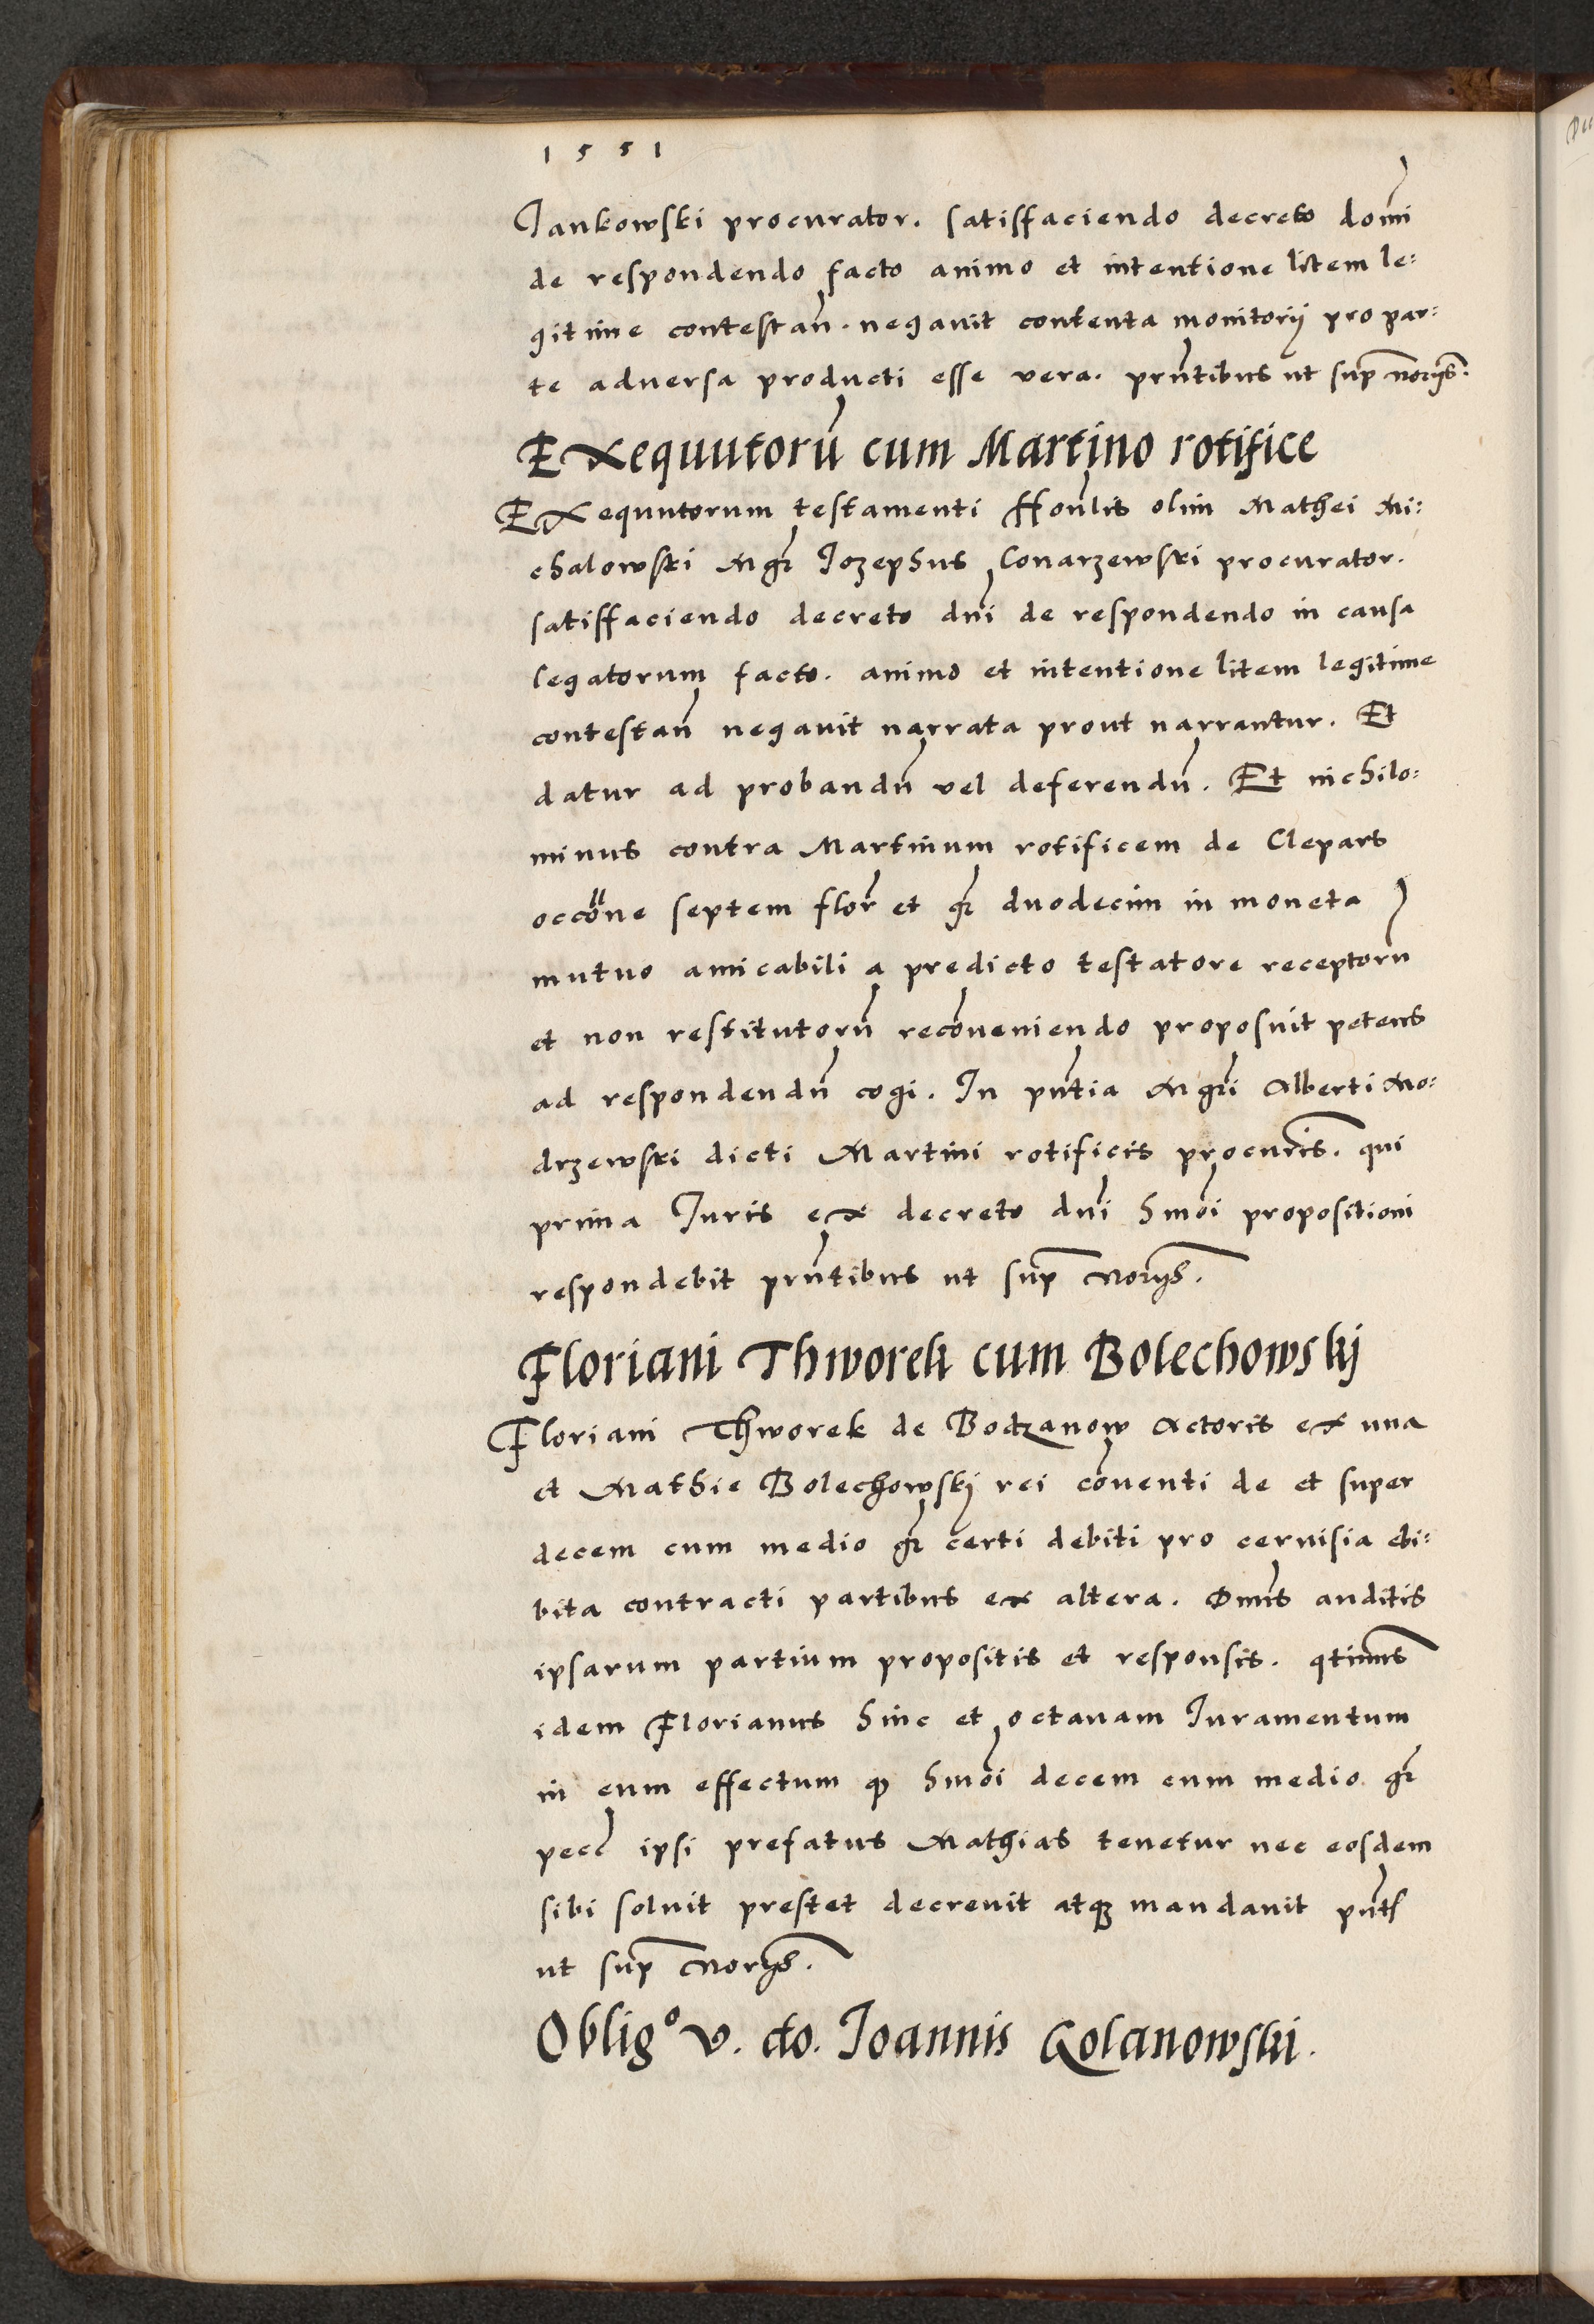 1551
Jankowski procurator. satisffaciendo decreto domī
de respondendo facto animo et intentione litem le:
gitime contestan̄. negavit contenta monitorij pro par:
te adversa producti esse vera. prn̄tibus ut sup̄ norijs.
EXequutorū cum Martino rotifice
EXequutorum testamenti Hon̄lis olim Mathei Mi:
chalowski Mgr̄ Jozephus Conarzewski procurator.
satisffaciendo decreto dn̄i de respondendo in causa
legatorum facto. animo et intentione litem legitime
contestan̄ negavit narrata prout narrantur. Et
datur ad probandū vel deferendū. Et nichilo:
minus contra Martinum rotificem de Clepars
occōne septem flor̄ et gr̄ duodecim in moneta
mutuo amicabili a predicto testatore receptorū
et non restitutorū recōveniendo proposuit petens
ad respondendū cogi. In pn̄tia Mgr̄i Alberti Mo:
drzewski dicti Martini rotificis procur̄is. qui
prima Juris ex decreto dn̄i hmōi propositioni
respondebit prn̄tibus ut sup̄ Norijs.
Floriani Thworek cum Bolechowskj
Floriani Thworek de Bodzanow Actoris ex una
et Mathie Bolechowskj rei cōventi de et super
decem cum medio gr̄ certi debiti pro cervisia ebi:
bita contracti partibus ex altera. Dnūs auditis
ipsarum partium propositis et responsis. qtinus
idem Florianus hinc et octavam Juramentum
in eum effectum qz hmōi decem cum medio gr̄
pecc̄ ipsi prefatus Mathias tenetur nec eosdem
sibi solvit prestet decrevit atqz mandavit pn̄ts
ut sup̄ Norijs.
Obligº v. do. Joannis Golanowski.